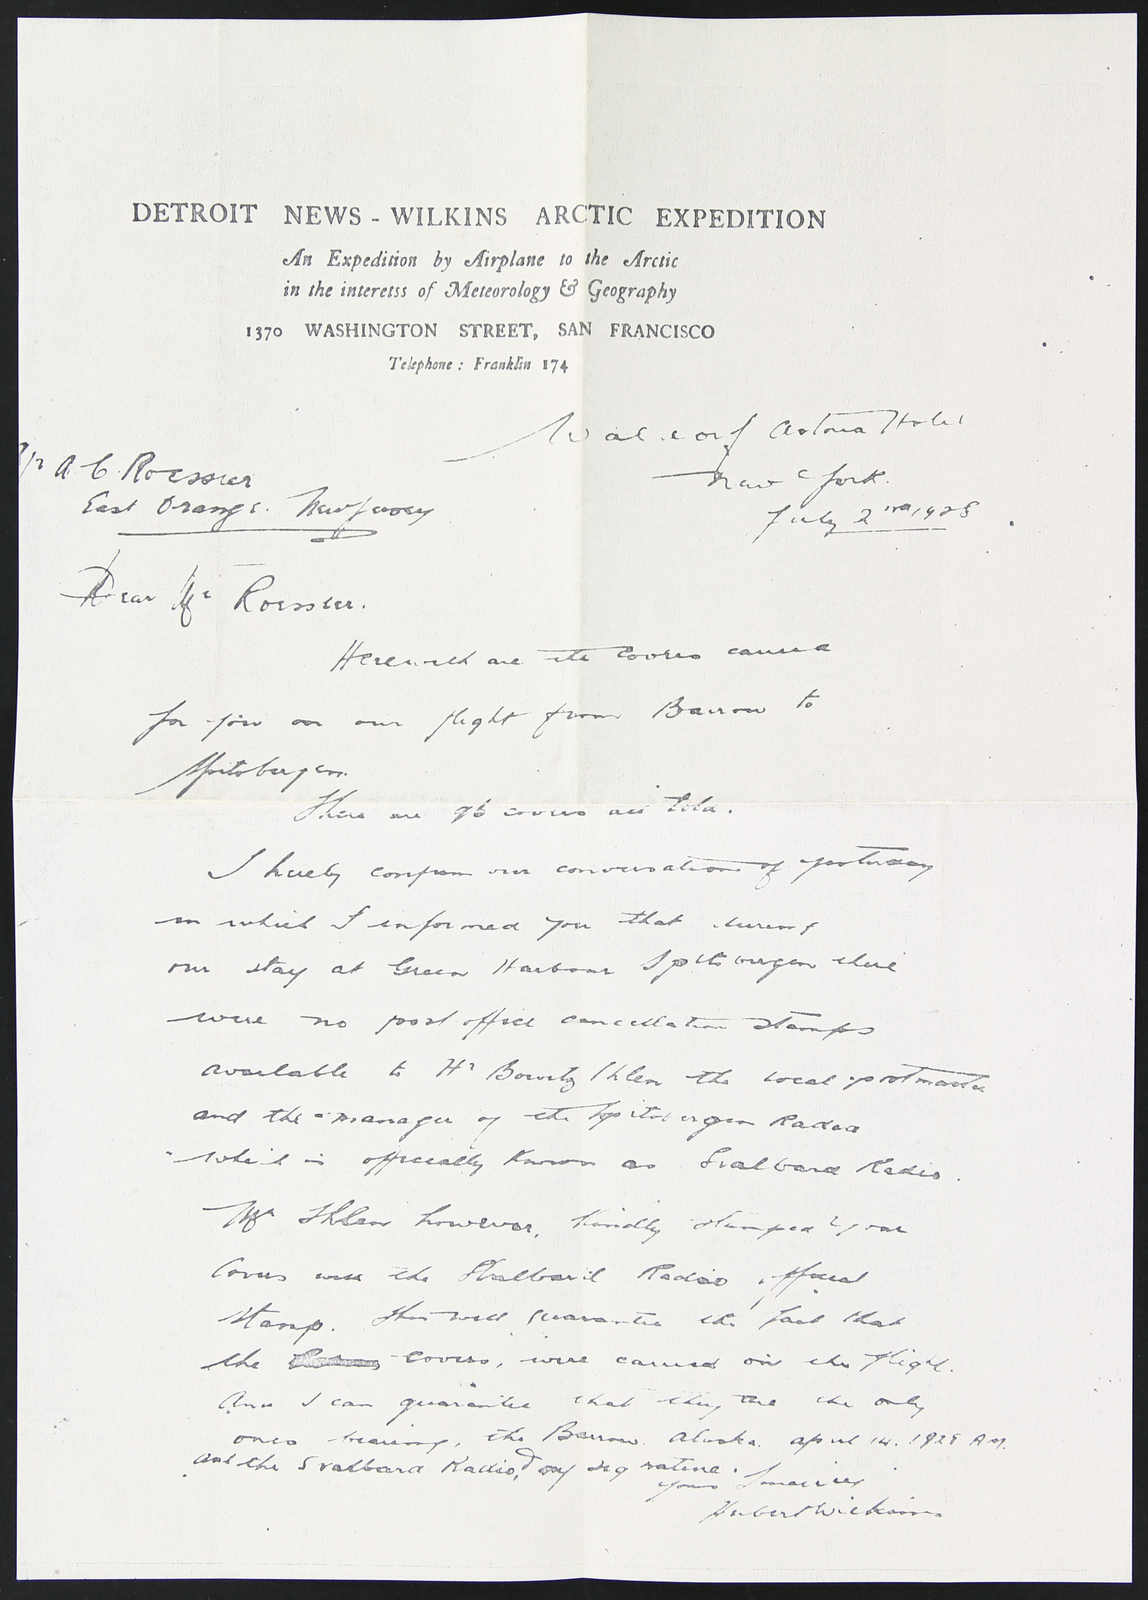 DETROIT NEWS - WILKINS ARCTIC EXPEDITION
An Expedition by Airplane to the Arctic
in the interetss of Meteorology & Geography
1370 WASHINGTON STREET, SAN FRANCISCO
Telephone: Franklin 174
Waldorf Astoria Hotel
New York.
July 2nd 1928
Mr A C. Roessler
East Orange. New Jersey
Dear Mr Roessler.
Herewith are the covers carried
for you on our flight from Barrow to
Spitsbergen.
There are covers all told.
I hereby confirm our conversation of yesterday
in which I informed you that during
our stay at Green Harbour Spitsbergen there
were no post office cancellation stamps
available to Hr Ihlen the local postmaster
and the manager of the Spitsbergen Radio
which is officially known as Svalbard Radio.
Mr Ihlen however, kindly stamped your
Covers with the Svalbard Radio official
stamp. This will guarantee the fact that
the covers, were carried on the flight.
And I can guarantee that they are the only
ones bearing, the Barrow. Alaska. april 14. 1928 AM.
and the Svalbard Radio, & my signature.
yours Sincerely
Hubert Wilkins